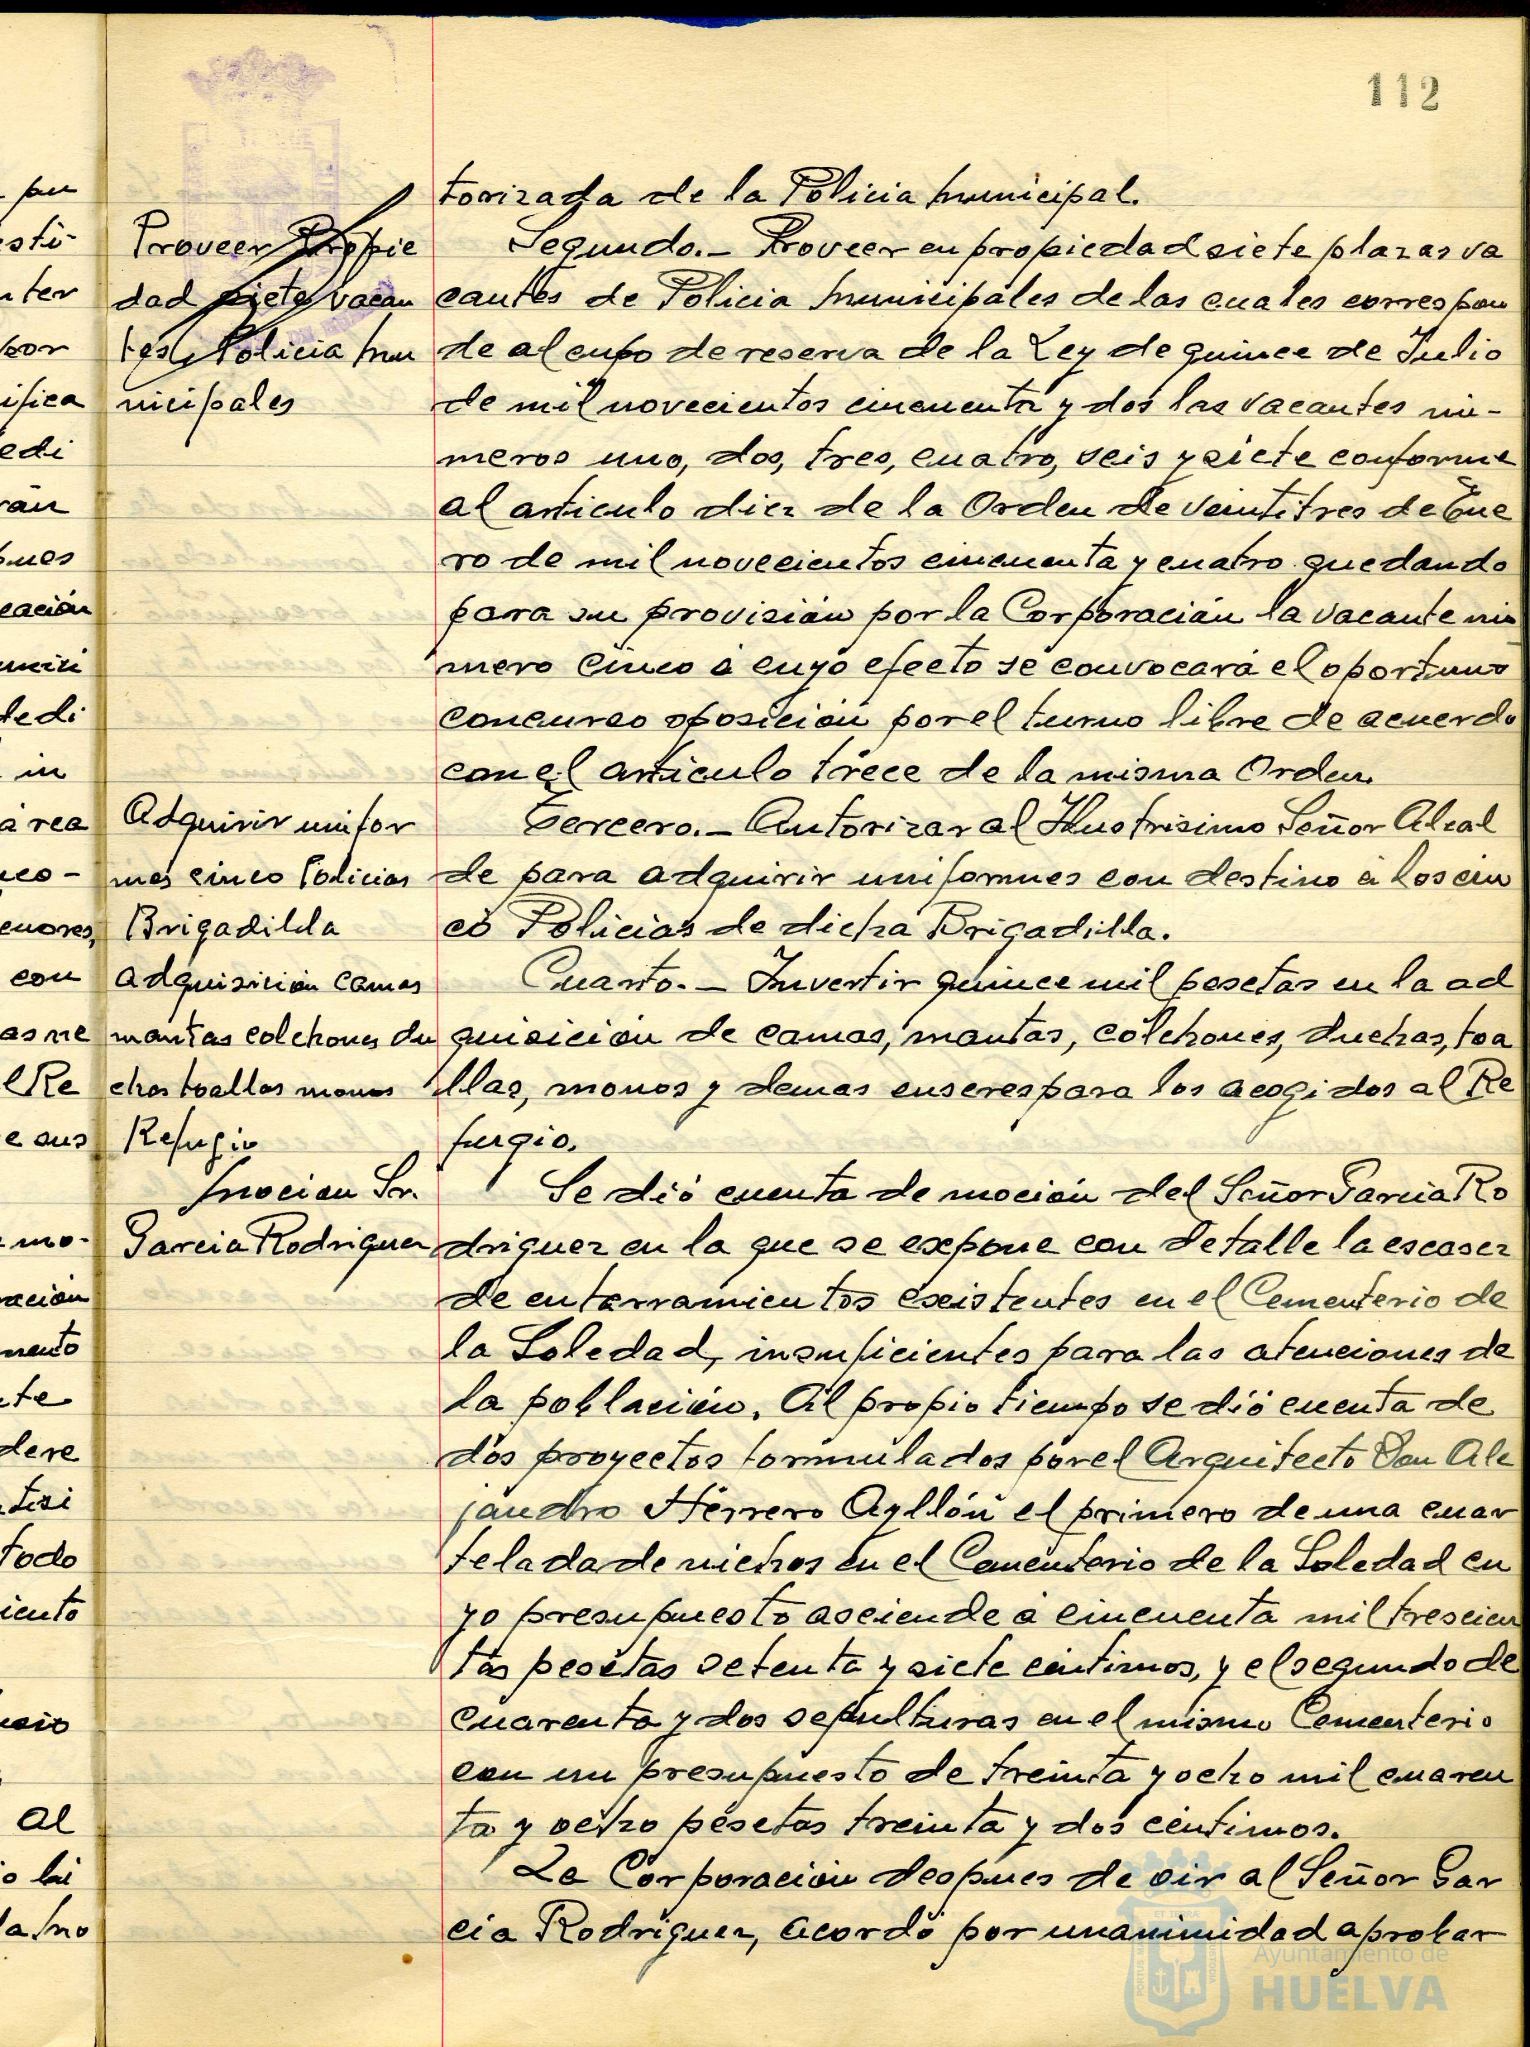 112
torizada de la Policia Municipal.
Proveer Propie
dad siete vacan
tes Policia Mu
nicipales
Segundo.- Proveer en propiedad siete plazas va
cantes de Policia Municipales de las cuales correspon
de al cupo de reserva de la Ley de quince de Julio
de mil novecientos cincuenta y dos las vacantes nú-
meros uno, dos, tres, cuatro, seis y siete conforme
al articulo diez de la Orden de veintitres de Ene
ro de mil novecientos cincuenta y cuatro quedando
para su provisión por la Corporación la vacante nú
mero cinco á cuyo efecto se convocará el oportuno
concurso oposición por el turno libre de acuerdo
con el articulo trece de la misma Orden.
Adquirir unifor
mes cinco Policias
Brigadilla
Tercero.- Autorizar al Ilustrisimo Señor Alcal
de para adquirir uniformes con destino á los cin
co Policias de dicha Brigadilla.
adquisición camas
mantas colchones du
chas toallas monos
Refugio
Cuarto.- Invertir quince mil pesetas en la ad
quisición de camas, mantas, colchones, duchas, toa
llas, monos y demas enseres para los acogidos al Re
fugio.
Moción Sr.
Garcia Rodriguez
Se dió cuenta de moción del Señor Garcia Ro
driguez en la que se expone con detalle la escasez
de enterramientos existentes en el Cementerio de
la Soledad, insuficientes para las atenciones de
la población. Al propio tiempo se dió cuenta de
dos proyectos formulados por el Arquitecto Don Ale
jandro Herrero Ayllón el primero de una cuar
telada de nichos en el Cementerio de la Soledad cu
yo presupuesto asciende á cincuenta mil trescien
tas pesetas setenta y siete céntimos, y el segundo de
cuarenta y dos sepulturas en el mismo Cementerio
con un presupuesto de treinta y ocho mil cuaren
ta y ocho pesetas treinta y dos céntimos.
La Corporación despues de oir al Señor Gar
cia Rodriguez, acordó por unanimidad aprobar
Ayuntamiento de
HUELVA